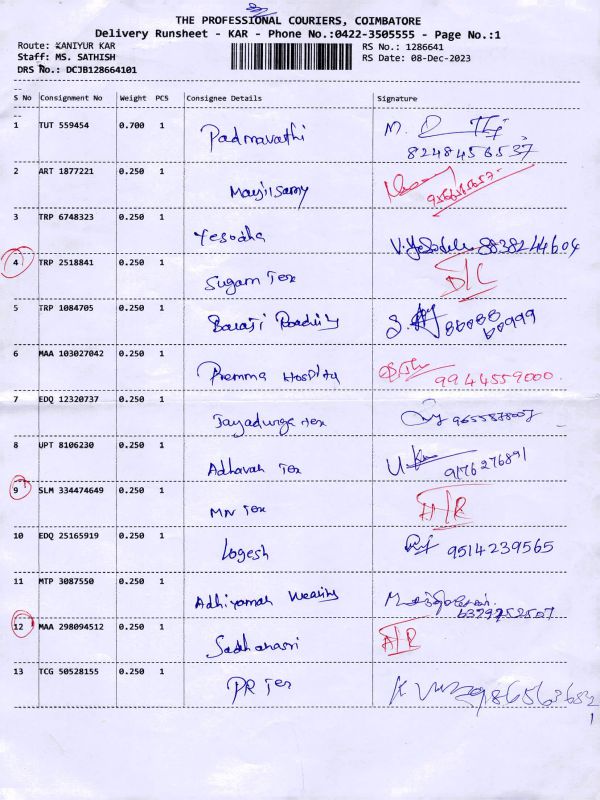 THE PROFESSIONAL COURIERS, COIMBATORE
Delivery Runsheet - KAR - Phone No.:0422-3505555 - Page No.:1
Route: KANIYUR KAR RS No.: 1286641
Staff: MS. SATHISH RS Date: 08-Dec-2023
DRS No.: DCJB128664101
S No Consignment No Weight PCS Consignee Details Signature
1 TUT 559454 0.700 1 Padmavathi M.
8248456537
2 ART 1877221 0.250 1
3 TRP 6748323 0.250 1 Yesodha 8838244604
4 TRP 2518841 0.250 1 Sugam Tex D/L
5 TRP 1084705 0.250 1 Balaji
6 MAA 103027042 0.250 1 Premma Hospital 9944559000
7 EDQ 12320737 0.250 1 Jayadurga Tex
8 UPT 8106230 0.250 1 Adhavah Tex 9176276891
9 SLM 334474649 0.250 1 MN Tex A/R
10 EDQ 25165919 0.250 1 Logesh 9514239565
11 MTP 3087550 0.250 1 Adhiyamah
12 MAA 298094512 0.250 1 A/R
13 TCG 50528155 0.250 1 PR Tex
1